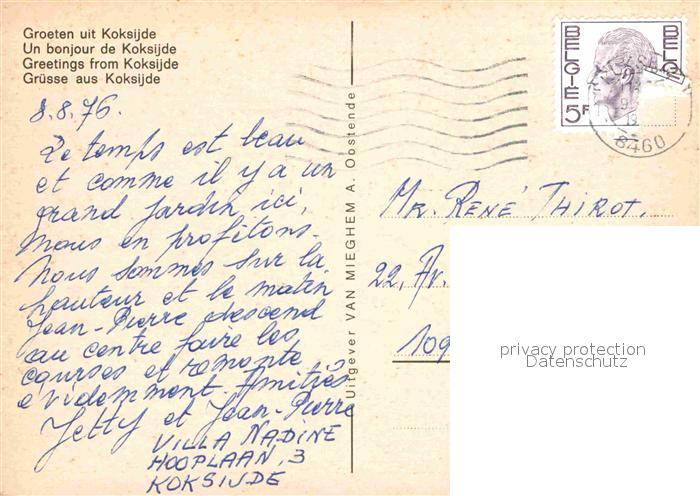 Groeten uit Koksijde
Un bonjour de Koksijde
Greetings from Koksijde
Grüsse aus Koksijde
8.8.76.
Le temps est beau
et comme il y a un
grand jardin ici,
nous en profitons.
Nous sommes sur la
hauteur et le matin
Jean-Pierre descend
au centre faire les
courses et remonte
évidemment. Amitiés
Jetty et Jean-Pierre
VILLA NADINE
HOOPLAAN, 3
KOKSIJDE
Uitgever VAN MIEGHEM A. Oostende
BELGIE BELGIQUE
5F
8460
MR. RENÉ THIROT.
22, AV.
109
privacy protection
Datenschutz